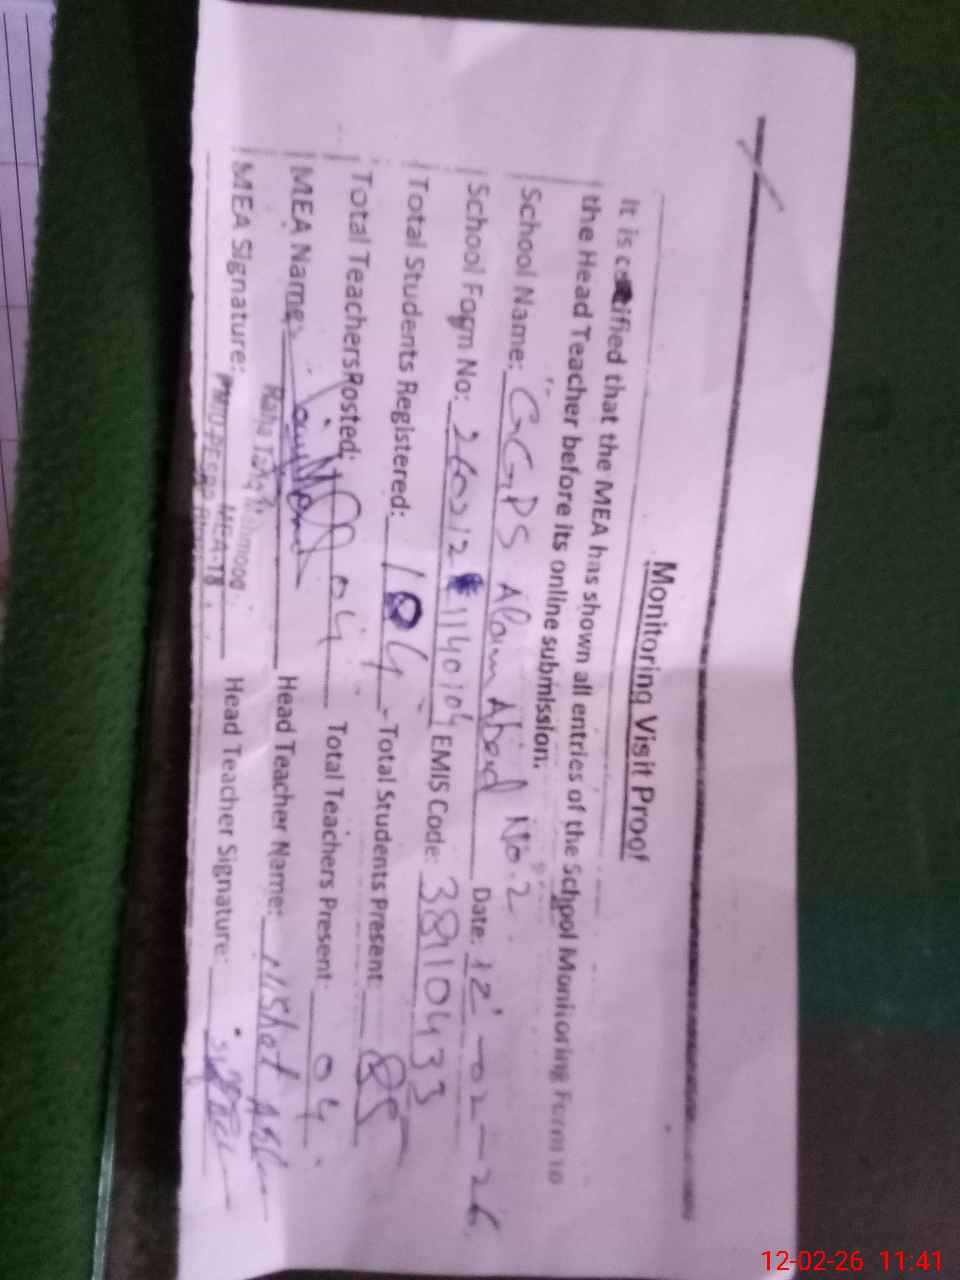 Monitoring Visit Proof
It is certified that the MEA has shown all entries of the School Monitoring Form to
the Head Teacher before its online submission.
School Name: GGPS Alam Abad No.2 Date: 12-02-26
School Form No: 260212 1140104 EMIS Code: 38110433
Total Students Registered: 104 Total Students Present: 85
Total Teachers Posted: 04 Total Teachers Present: 04
MEA Name: Head Teacher Name: Nishat
MEA Signature: Head Teacher Signature:
MEA-18
12-02-26 11:41